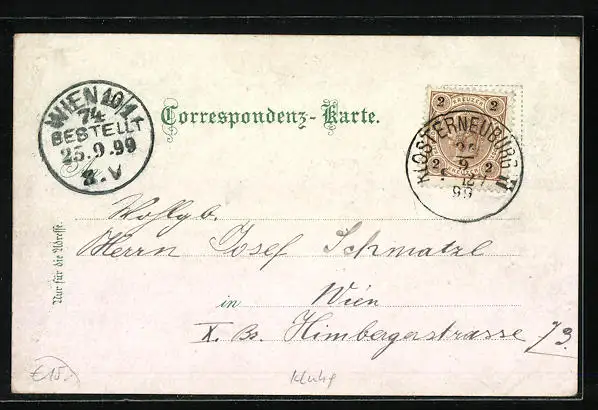 Correspondenz-Karte.
WIEN 10/1
74
BESTELLT
25.9.99
8.V
2 KREUZER 2
2 2
KLOSTERNEUBURG
9
12
99
Nur für die Adresse.
Wohlgb.
Herrn Josef Schmatzl
in Wien
X. Bz. Himbergerstrasse 73.
€15.-